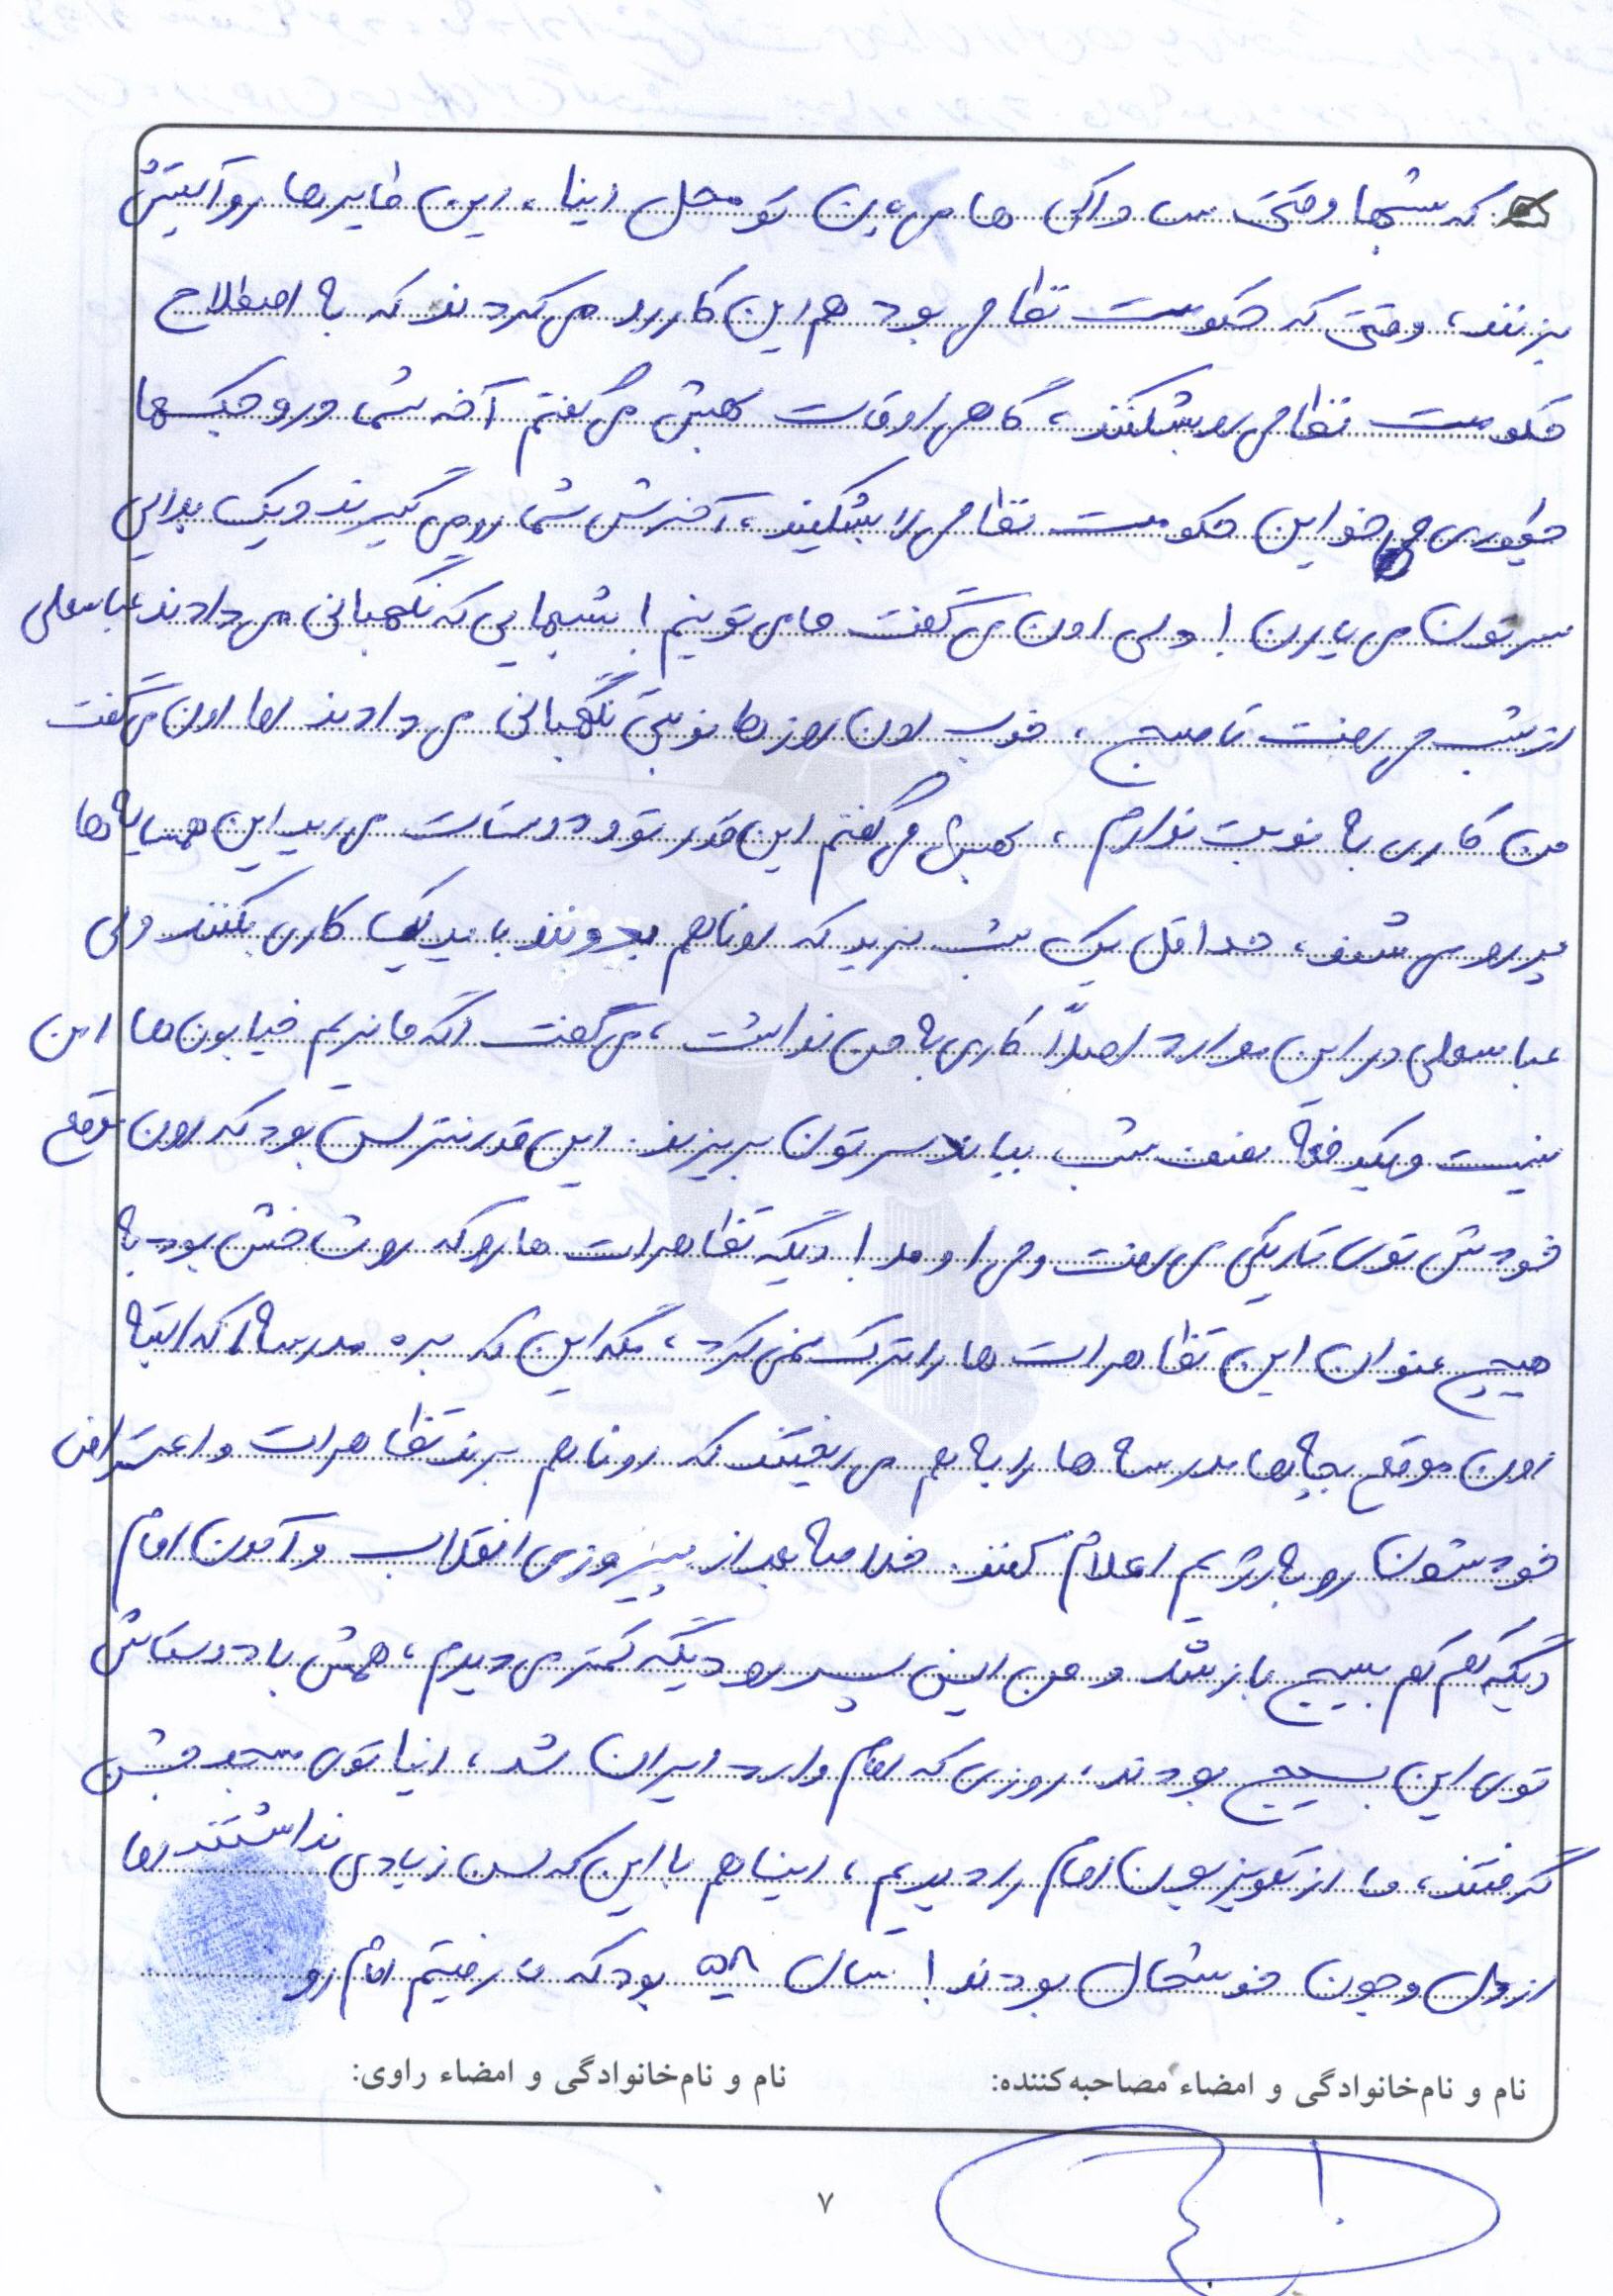 که شبها وقتی ساواکی ها می‌ین تو محل اینا، این تایرها رو آتیش
بزنند، وقتی که حکومت نظامی بود هم این کار رو می‌کردند که به اصطلاح
حکومت نظامی رو بشکنند، گاهی اوقات بهش می گفتم آخه شما وروجکها
چطوری می خواین حکومت نظامی را بشکنید، آخرش شما رو می گیرند و یک بلایی
سرتون می یارن! ولی اون می گفت ما می تونیم! شبهایی که نگهبانی می دادند عباسعلی
از شب می رفت تا صبح، خوب اون روزها نوبتی نگهبانی می دادند اما اون می گفت
من کاری به نوبت ندارم، بهش می گفتم این قدر تو و دوستات می رید این همسایه ها
پررو می شند، حداقل یک شب نرید که اونا هم بدونند باید یک کاری بکنند ولی
عباسعلی در این موارد اصلاً کاری به من نداشت، می گفت اگه ما نریم خیابون ها امن
نیست و یکدفعه نصف شب بیاند سرتون بریزند. این قدر نترس بود که اون موقع
خودش توی تاریکی می رفت و می اومد! دیگه تظاهرات ها رو که روشاخش بود به
هیچ عنوان این تظاهرات ها را ترک نمی کرد، مگه این که بره مدرسه که البته
اون موقع بچه ها مدرسه ها را به هم می ریختند که اونا هم برند تظاهرات و اعتراض
خودشون رو به رژیم اعلام کنند. خلاصه بعد از پیروزی انقلاب و آمدن امام
دیگه کم کم بسیج باز شد و من این پسر رو دیگه کمتر می دیدم، همش با دوستاش
توی این بسیج بودند، روزی که امام وارد ایران شد، اینا توی مسجد جشن
گرفتند، ما از تلویزیون امام را دیدیم، اینا هم با این که سن زیادی نداشتند اما
از دل و جون خوشحال بودند! سال ۵۸ بود که ما رفتیم امام رو
نام و نام‌خانوادگی و امضاء مصاحبه‌کننده: نام و نام‌خانوادگی و امضاء راوی:
۷